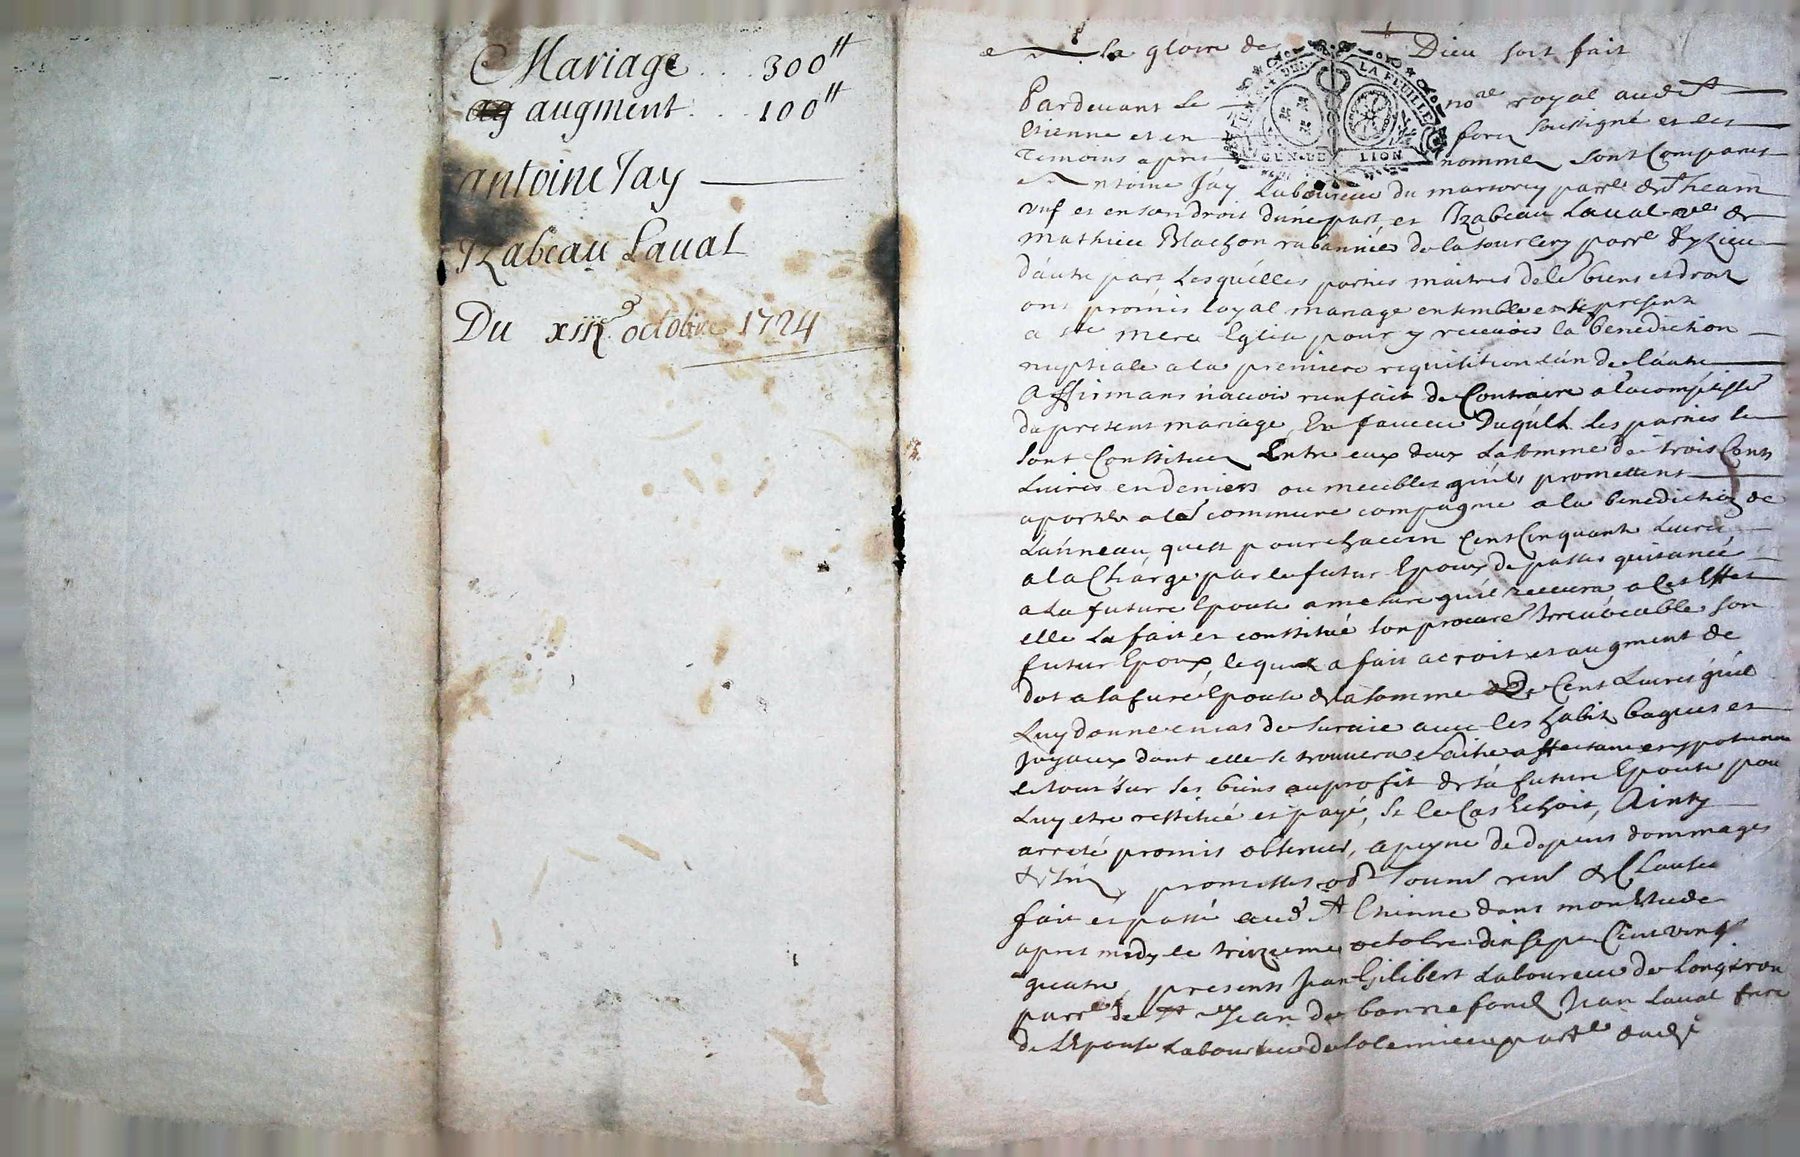 Mariage . . . 300ᵗᵗ
augment . . . 100ᵗᵗ
antoine Jay
Izabeau Laual
Du xiijᵉ octobre 1724
a la gloire de Dieu soit fait
Pardeuant le noʳᵉ royal aud Sᵗ
Etienne et en forez soussigné et les
Temoins apres nommez sont Comparus
Antoine Jay Laboureur du parrᵉ de
vuf et en son droit dune part et Izabeau Laual vᵉ de
mathieu Blachon rubannier de la parrᵉ dyzieu
dautre part Lesquelles parties maitres de le biens et droit
ont promis loyal mariage ensemble et se present
a sᵗᵉ mere Eglise pour y receuoir la benediction
nuptiale a la premiere requisition lun de lautre
Affirmans nauoir rien fait de Contraire a lacomplissᵗ
du present mariage, En faueur Duquel les parties se
sont Constituez Entre eux deux La somme de trois Cents
Liures en deniers ou meubles quils promettent
aporter a la commune compagnie a la benediction de
Lanneau, quest pour chacun Cent Cinquante Liures
a la Charge par le futur Epoux de passer quitance
a la future Epouse a mesure quil receura a cet Effet
elle La fait et constitué son procurᵉ Irreuocable son
futur Epoux, lequel a fait acroit et augment de
dot a la futre Epouse de la somme de Cent Liures quil
Luy donne en cas de suruie auec les habits bagues et
Joyaux dont elle se trouuera saisie affectant et ypotequant
le tout sur ses biens au profit de sa future Epouse pour
Luy etre restitué et payé, si le Cas Echoit, Ainsy
arreté promis obseruer, a peyne de depens dommages
promettes obᵗ soumᵗ renᵗ & Clauses
fait et passé aud Sᵗ Etienne dans mon Etude
apres midy le treizieme octobre dix sept Cent vingt
quatre, presents Jean Gilibert Laboureur de
parrᵉ de Sᵗ Jean de bonnefond Jean Laual frere
de LEpouse Laboureur de parrᵉ dudᵗ